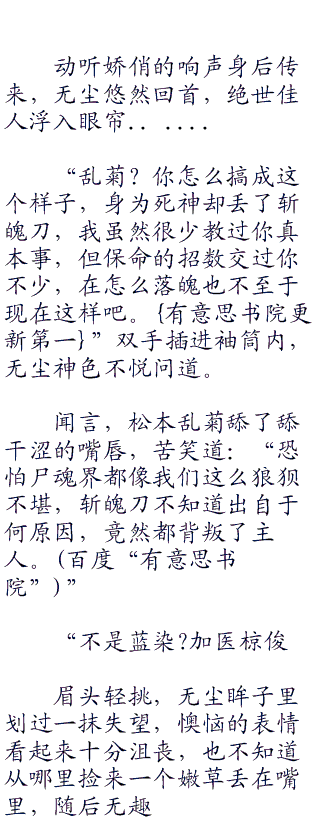 动听娇俏的响声身后传
来，无尘悠然回首，绝世佳
人浮入眼帘．．．．．．
“乱菊？你怎么搞成这
个样子，身为死神却丢了斩
魄刀，我虽然很少教过你真
本事，但保命的招数交过你
不少，在怎么落魄也不至于
现在这样吧。{有意思书院更
新第一}”双手插进袖筒内，
无尘神色不悦问道。
闻言，松本乱菊舔了舔
干涩的嘴唇，苦笑道：“恐
怕尸魂界都像我们这么狼狈
不堪，斩魄刀不知道出自于
何原因，竟然都背叛了主
人。(百度“有意思书
院”)”
“不是蓝染?加医椋俊
眉头轻挑，无尘眸子里
划过一抹失望，懊恼的表情
看起来十分沮丧，也不知道
从哪里捡来一个嫩草丢在嘴
里，随后无趣